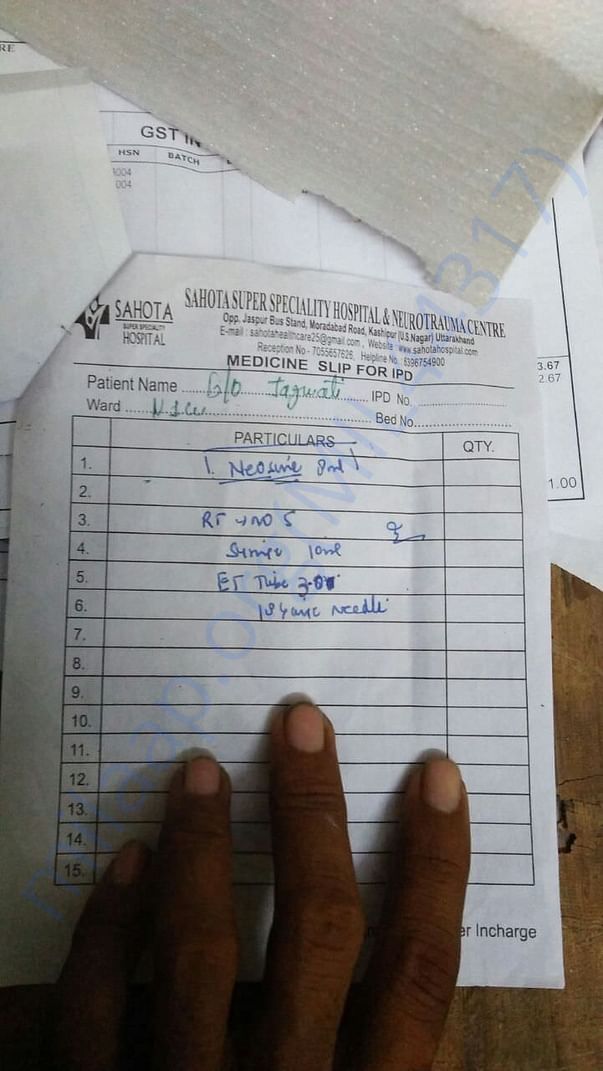 RE
GST IN
HSN BATCH
3004
004
SAHOTA
SUPER SPECIALITY
HOSPITAL
SAHOTA SUPER SPECIALITY HOSPITAL & NEUROTRAUMA CENTRE
Opp. Jaspur Bus Stand, Moradabad Road, Kashipur (U.S.Nagar) Uttarakhand
E-mail : sahotahealthcare25@gmail.com , Website : www.sahotahospital.com
Reception No - 7055657626, Helpline No.: 6396754900
MEDICINE SLIP FOR IPD
3.67
2.67
Patient Name B/O Jagwati IPD No.
Ward Nicu Bed No.
PARTICULARS QTY.
1. 1. Neosure
2.
3. RT NO 5
4. 10ml
5. ET Tube
6. Needle
7.
8.
9.
1.00
10.
11.
12.
13.
14.
15.
er Incharge